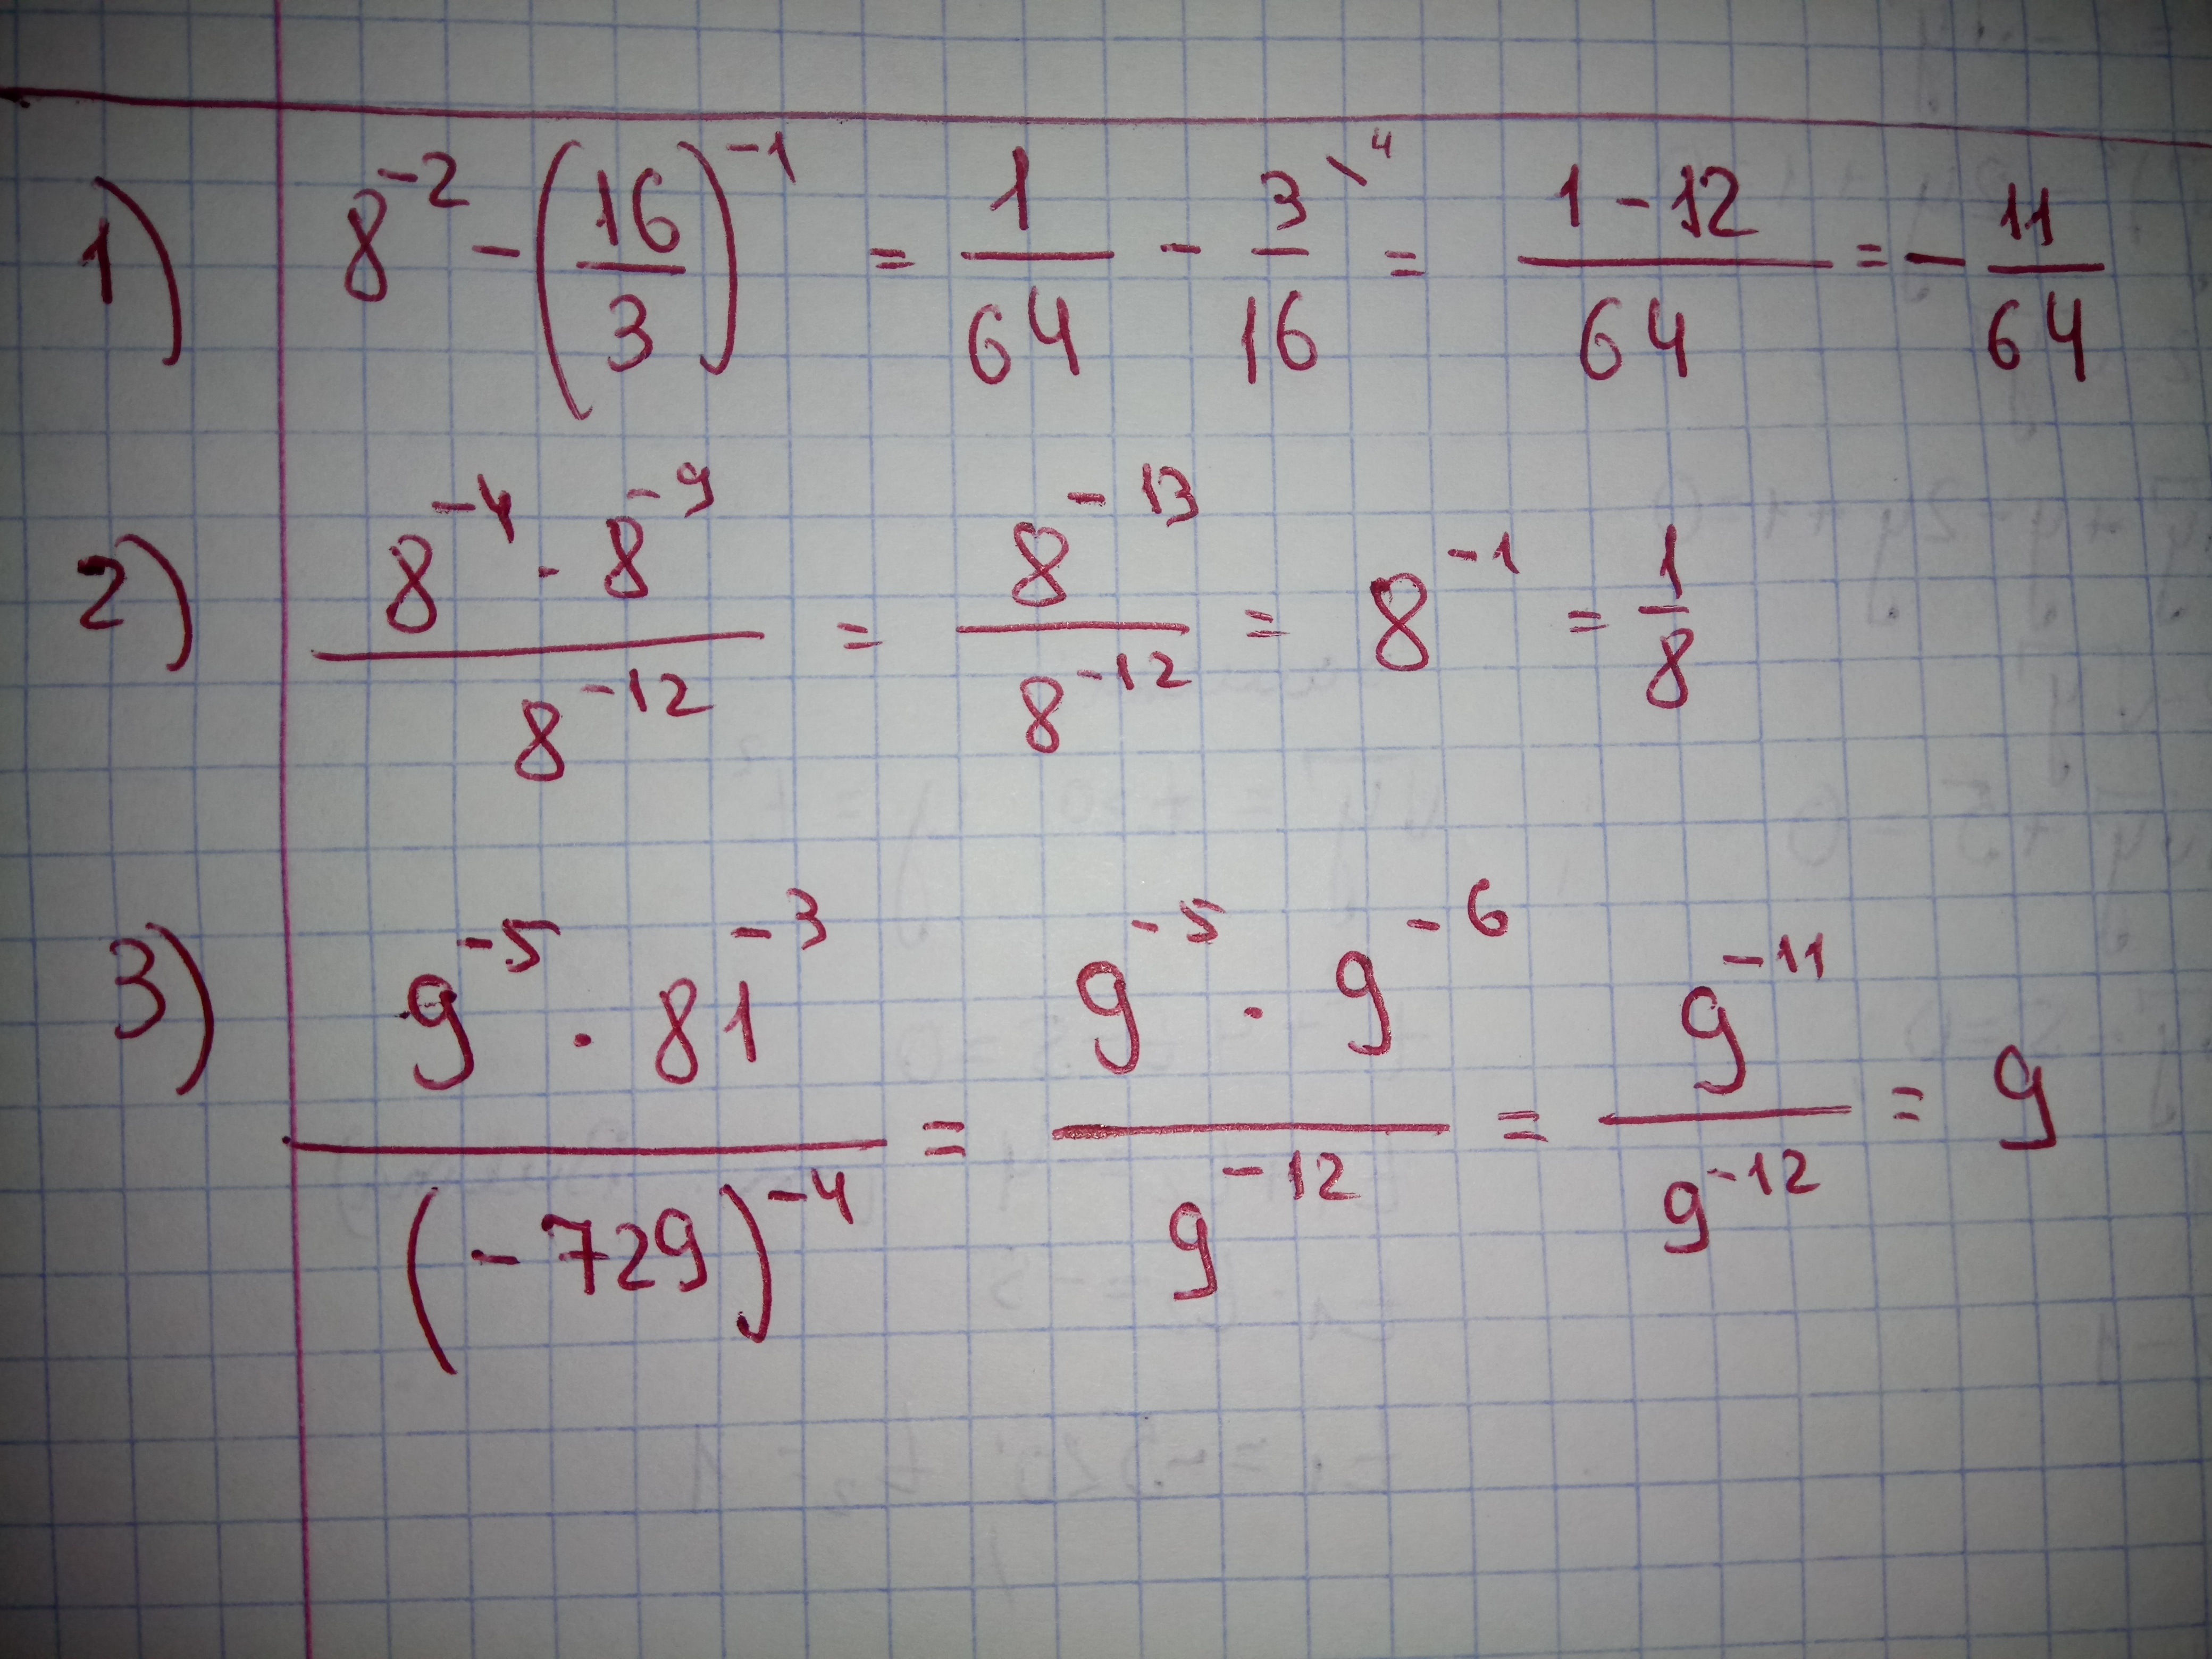 1) 8^-2 - (16/3)^-1 = 1/64 - 3/16 \4 = (1 - 12)/64 = - 11/64
2) (8^-4 · 8^-9)/8^-12 = 8^-13/8^-12 = 8^-1 = 1/8
3) (9^-5 · 81^-3)/(-729)^-4 = (9^-5 · 9^-6)/9^-12 = 9^-11/9^-12 = 9